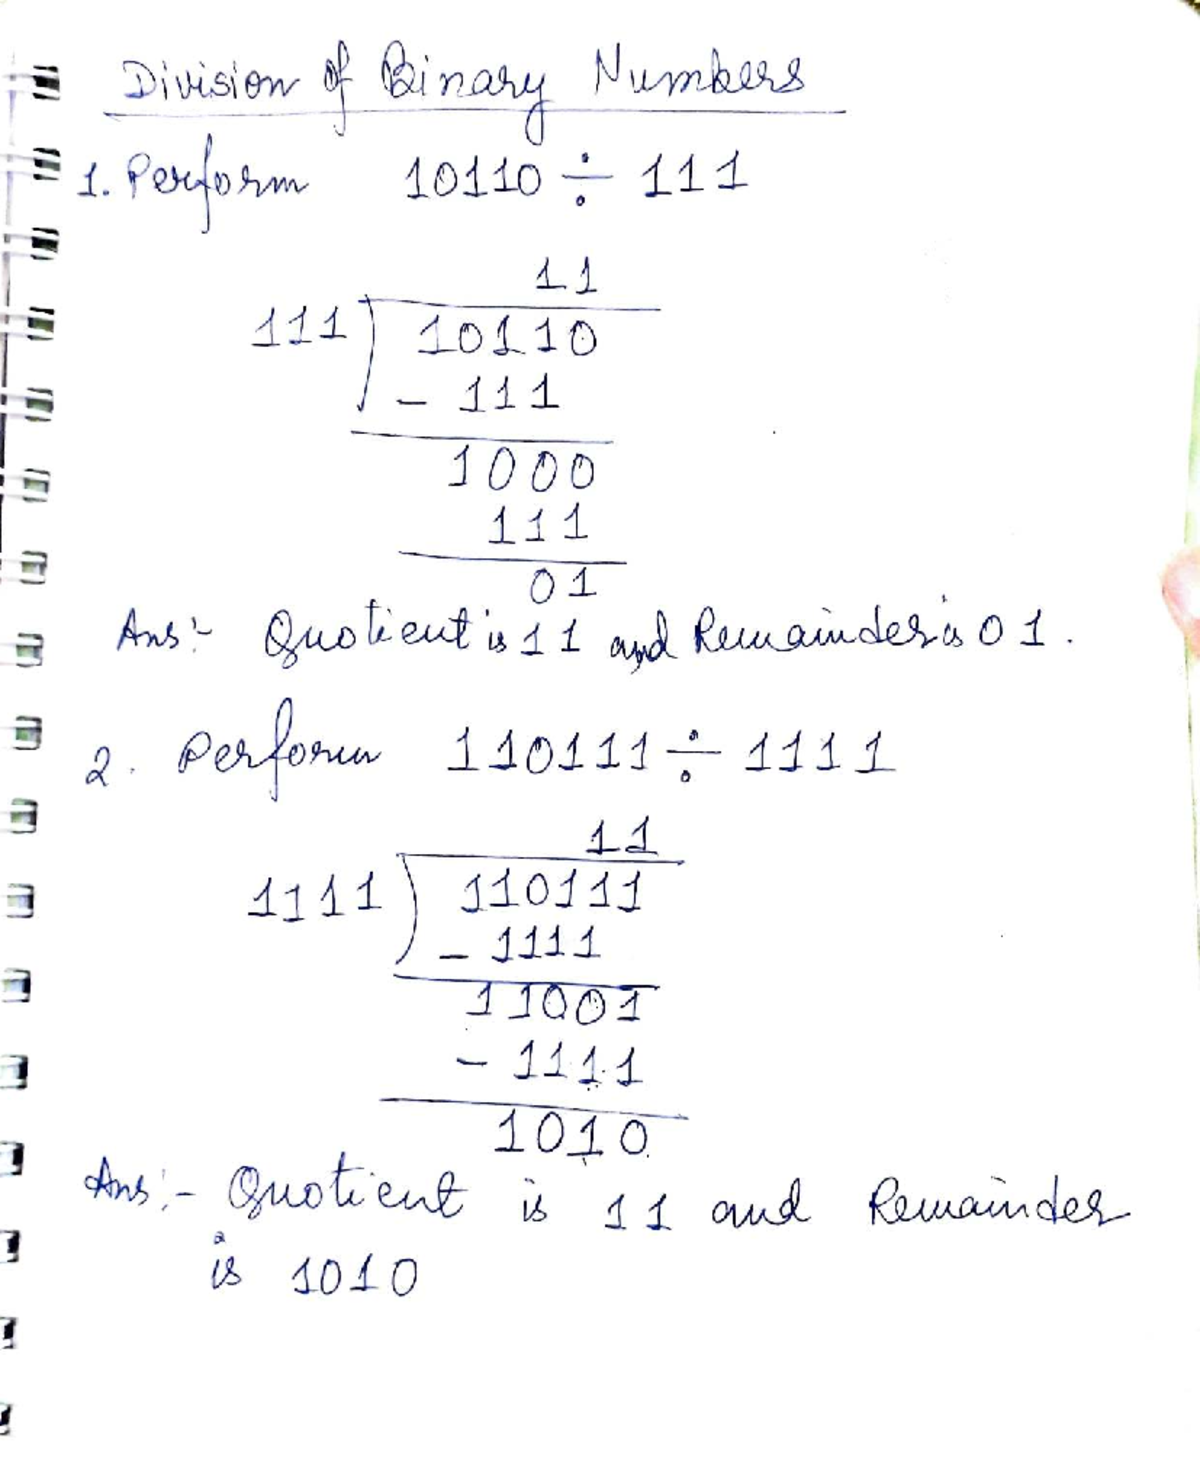 Division of Binary Numbers
1. Perform 10110 ÷ 111
11
111 ) 10110
- 111
1000
111
01
Ans:- Quotient is 11 and Remainder is 01.
2. Perform 110111 ÷ 1111
11
1111 ) 110111
- 1111
11001
- 1111
1010
Ans:- Quotient is 11 and Remainder
is 1010